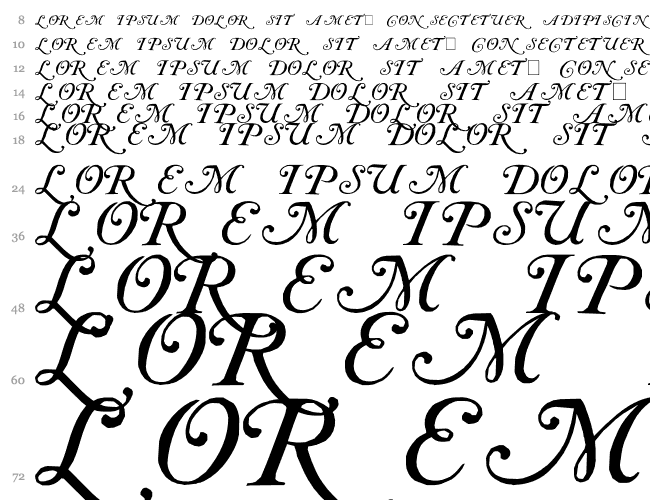 8 LOREM IPSUM DOLOR SIT AMET□ CONSECTETUER ADIPISCIN
10 LOREM IPSUM DOLOR SIT AMET□ CONSECTETUER
12 LOREM IPSUM DOLOR SIT AMET□ CONSE
14 LOREM IPSUM DOLOR SIT AMET□
16 LOREM IPSUM DOLOR SIT AM
18 LOREM IPSUM DOLOR SIT
24 LOREM IPSUM DOLO
36 LOREM IPSUM
48 LOREM IP
60 LOREM
72 LOREM